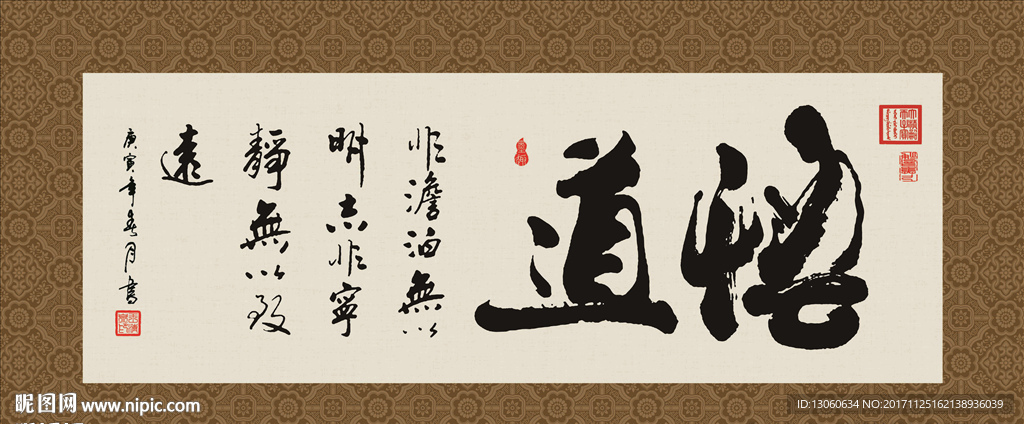 悟道
非澹泊無以
明志非寧
靜無以致
遠
庚寅年春月書
昵图网 www.nipic.com
ID:13060634 NO:20171125162138936039